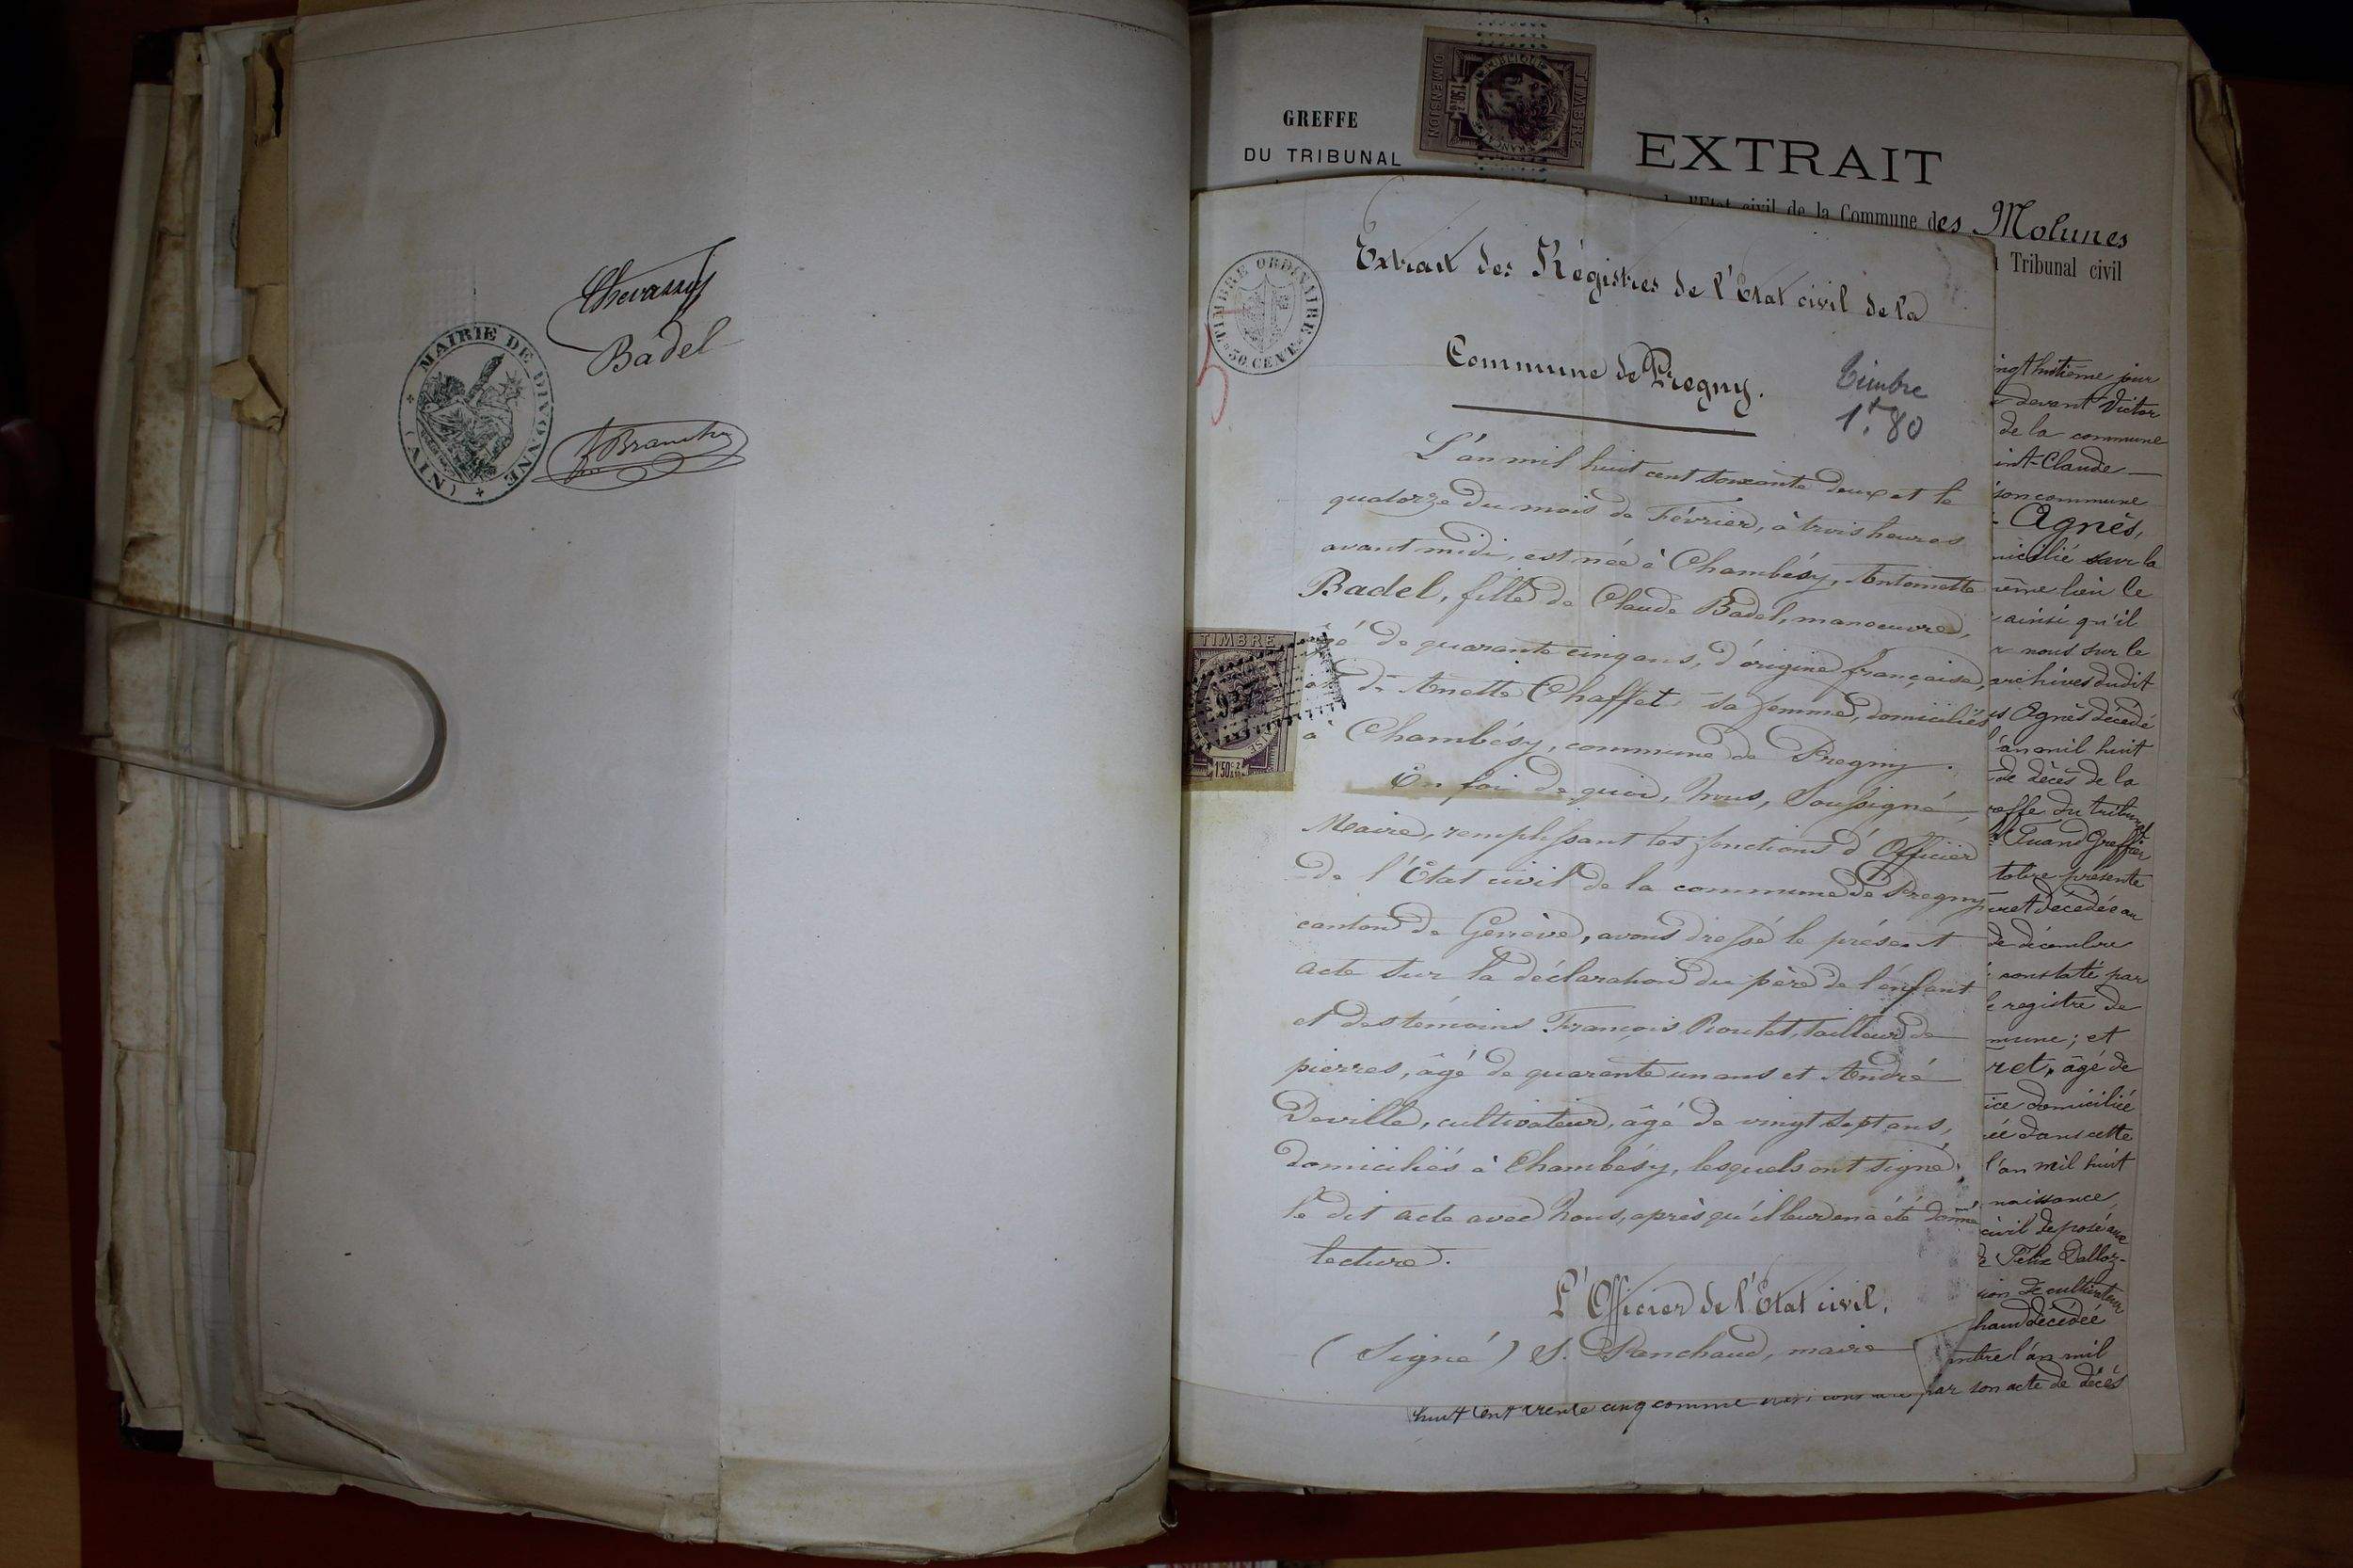 Chevassus
Badel
MAIRIE DE DIVONNE
(AIN)
GREFFE
DU TRIBUNAL
TIMBRE
DIMENSION
EXTRAIT
l'Etat civil de la Commune des Molunes
Tribunal civil
TIMBRE ORDINAIRE
50 CENT.
Extrait des Régistres de l'Etat civil de la
Commune de Pregny.
Timbre
1f.80
L'an mil huit cent soixante deux et le
quatorze du mois de Février, à trois heures
avant midi, est née à Chambésy, Antoinette
Badel, fille de Claude Badel, manoeuvre,
âgé de quarante cinq ans, d'origine française,
et de Anette Chaffet sa femme, domiciliés
à Chambésy, commune de Pregny.
En foi de quoi, Nous, Soussigné,
Maire, remplissant les fonctions d'Officier
de l'Etat civil de la commune de Pregny
canton de Genève, avons dressé le présent
acte sur la déclaration du père de l'enfant
et des témoins François Roulet, tailleur de
pierres, âgé de quarante un ans et André
Deville, cultivateur, âgé de vingt sept ans,
domiciliés à Chambésy, lesquels ont signé
le dit acte avec Nous, après qu'il leur en a été donné
lecture.
L'Officier de l'Etat civil.
(Signé) S. Panchaud, maire
TIMBRE
1f50c
ingt huitième jour
devant Victor
de la commune
int-Claude
son commune
Agnès,
micilié sur la
même lieu le
ainsi qu'il
nous sur le
archives dudit
Agnès décédé
l'an mil huit
de décès de la
greffe du tribunal
Tuand Greffier
tobre présente
et décédée au
de décembre
constaté par
le registre de
mune; et
ret, âgé de
ice domiciliée
ée dans cette
l'an mil huit
naissance,
civil déposé aux
Félix Dalloz-
ion de cultivateur
haud décédée
mbre l'an mil
huit cent trente cinq comme par son acte de décès